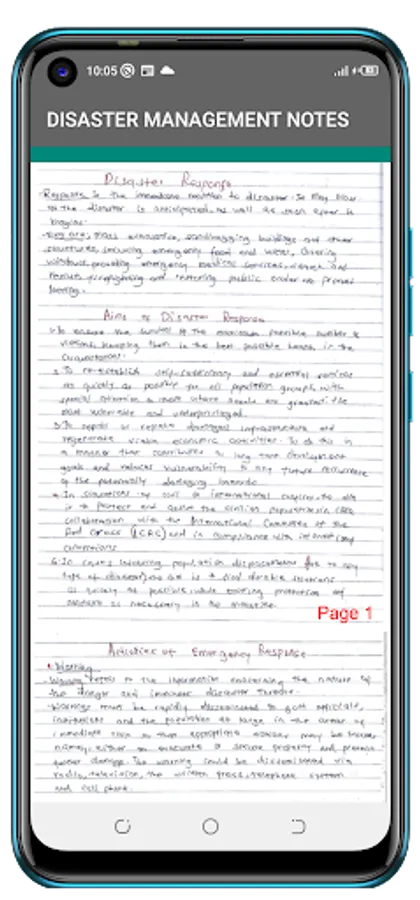 10:05
DISASTER MANAGEMENT NOTES
Disaster Response
Response is the immediate reaction to disaster. It may
as the disaster is anticipated, as well as soon after it
begins.
mass evacuation, sandbagging buildings and other
structures, securing emergency food and water,
providing emergency medical services, search and
firefighting and restoring public order
Aims to Disaster Response
To ensure the survival of the maximum possible number of
victims, keeping them in the best possible health in the
circumstances.
To re-establish self-sufficiency and essential services
as quickly as possible for all population groups, with
special attention to those whose needs are greatest: the
most vulnerable and underprivileged.
To repair or replace damaged infrastructure and
regenerate viable economic activities. To do this in
a manner that contributes to long term development
goals and reduces vulnerability to any future recurrence
of the potentially damaging hazards.
In situations of civil or international conflict, the aim
is to protect and assist the civilian population, in close
collaboration with the International Committee of the
Red Cross (ICRC) and in compliance with international
conventions
In cases involving population displacements due to any
type of disaster, the aim is to find durable solutions
as quickly as possible, while ensuring protection and
assistance as necessary in the meantime.
Page 1
Activities of Emergency Response
Warning
Warning refers to the information concerning the nature of
the danger and imminent disaster threats.
Warnings must be rapidly disseminated to govt officials,
institutions and the population at large in the areas of
immediate risk so that appropriate actions may be taken
namely, either to evacuate or secure property and prevent
further damage. The warning could be disseminated via
radio, television, the written press, telephone system
and cell phone.